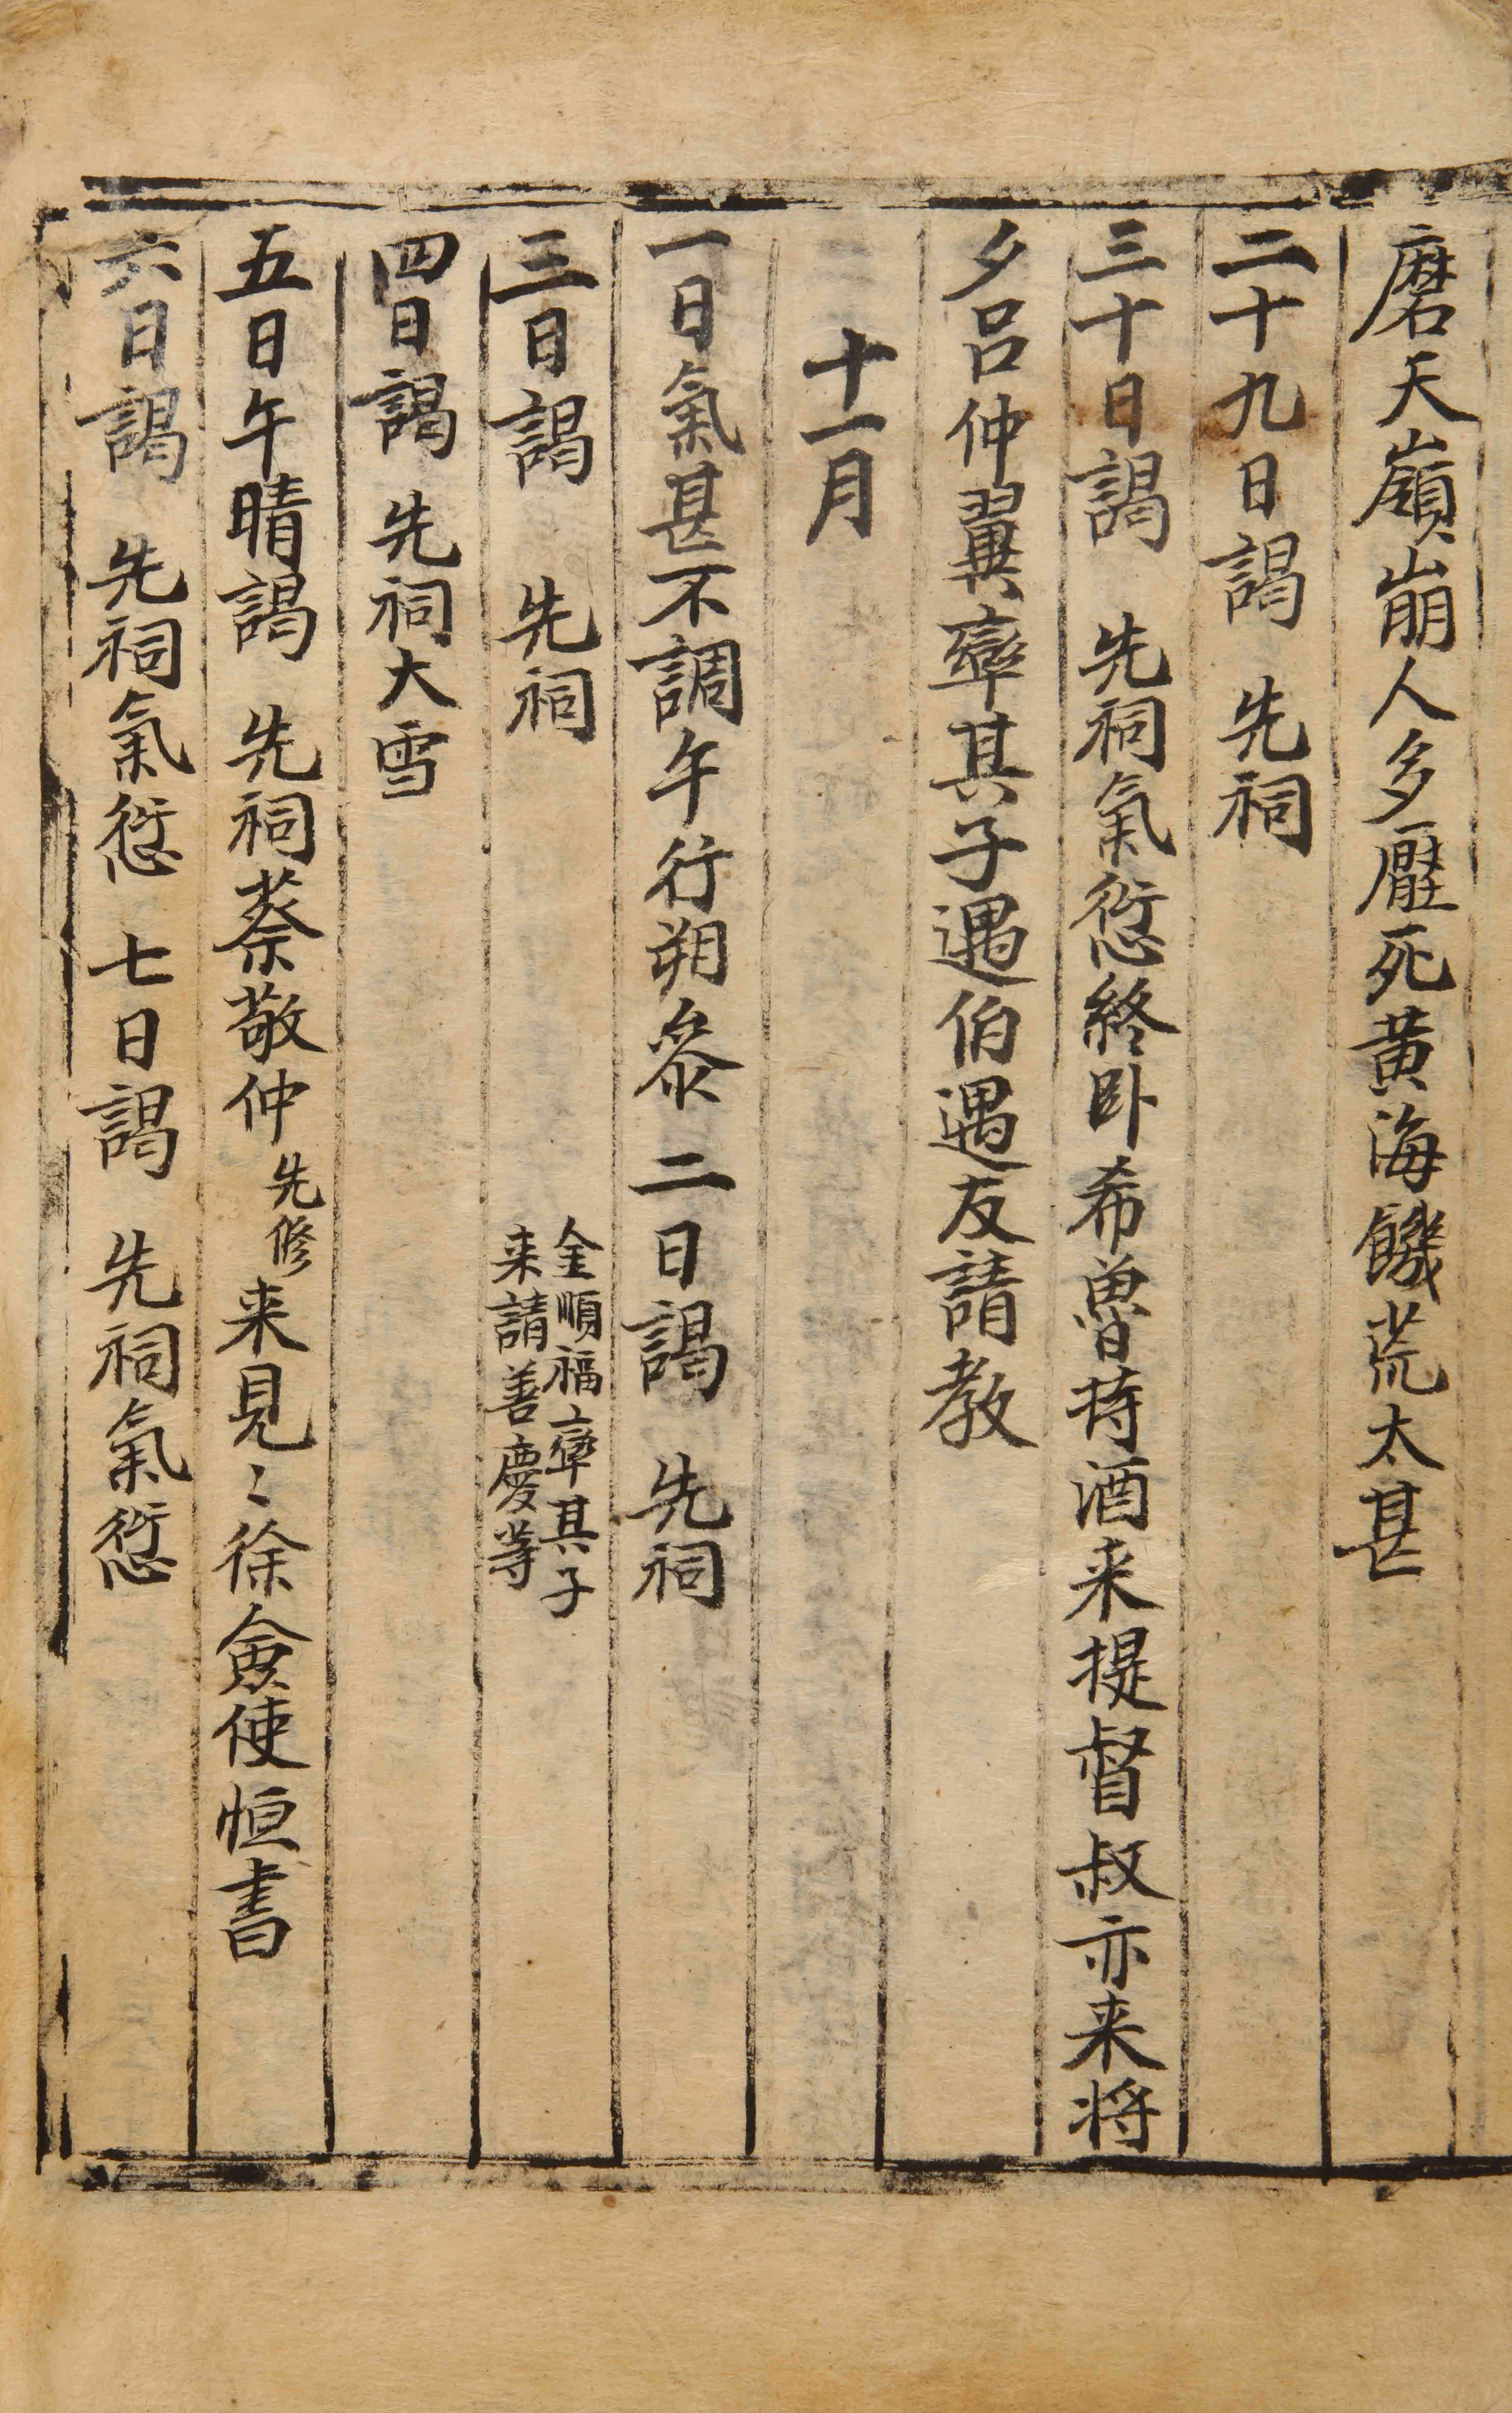 磨天嶺崩人多壓死黄海饑荒太甚
二十九日謁　先祠
三十日謁　先祠氣愆終卧希魯持酒来提督叔亦来將
夕呂仲翼率其子遇伯遇友請教
十一月
一日氣甚不調午行朔叅二日謁　先祠
三日謁　先祠　金順福率其子
来請善慶等
四日謁　先祠大雪
五日午晴謁　先祠蔡敬仲先修来見〻徐僉使恒書
六日謁　先祠氣愆　七日謁　先祠氣愆